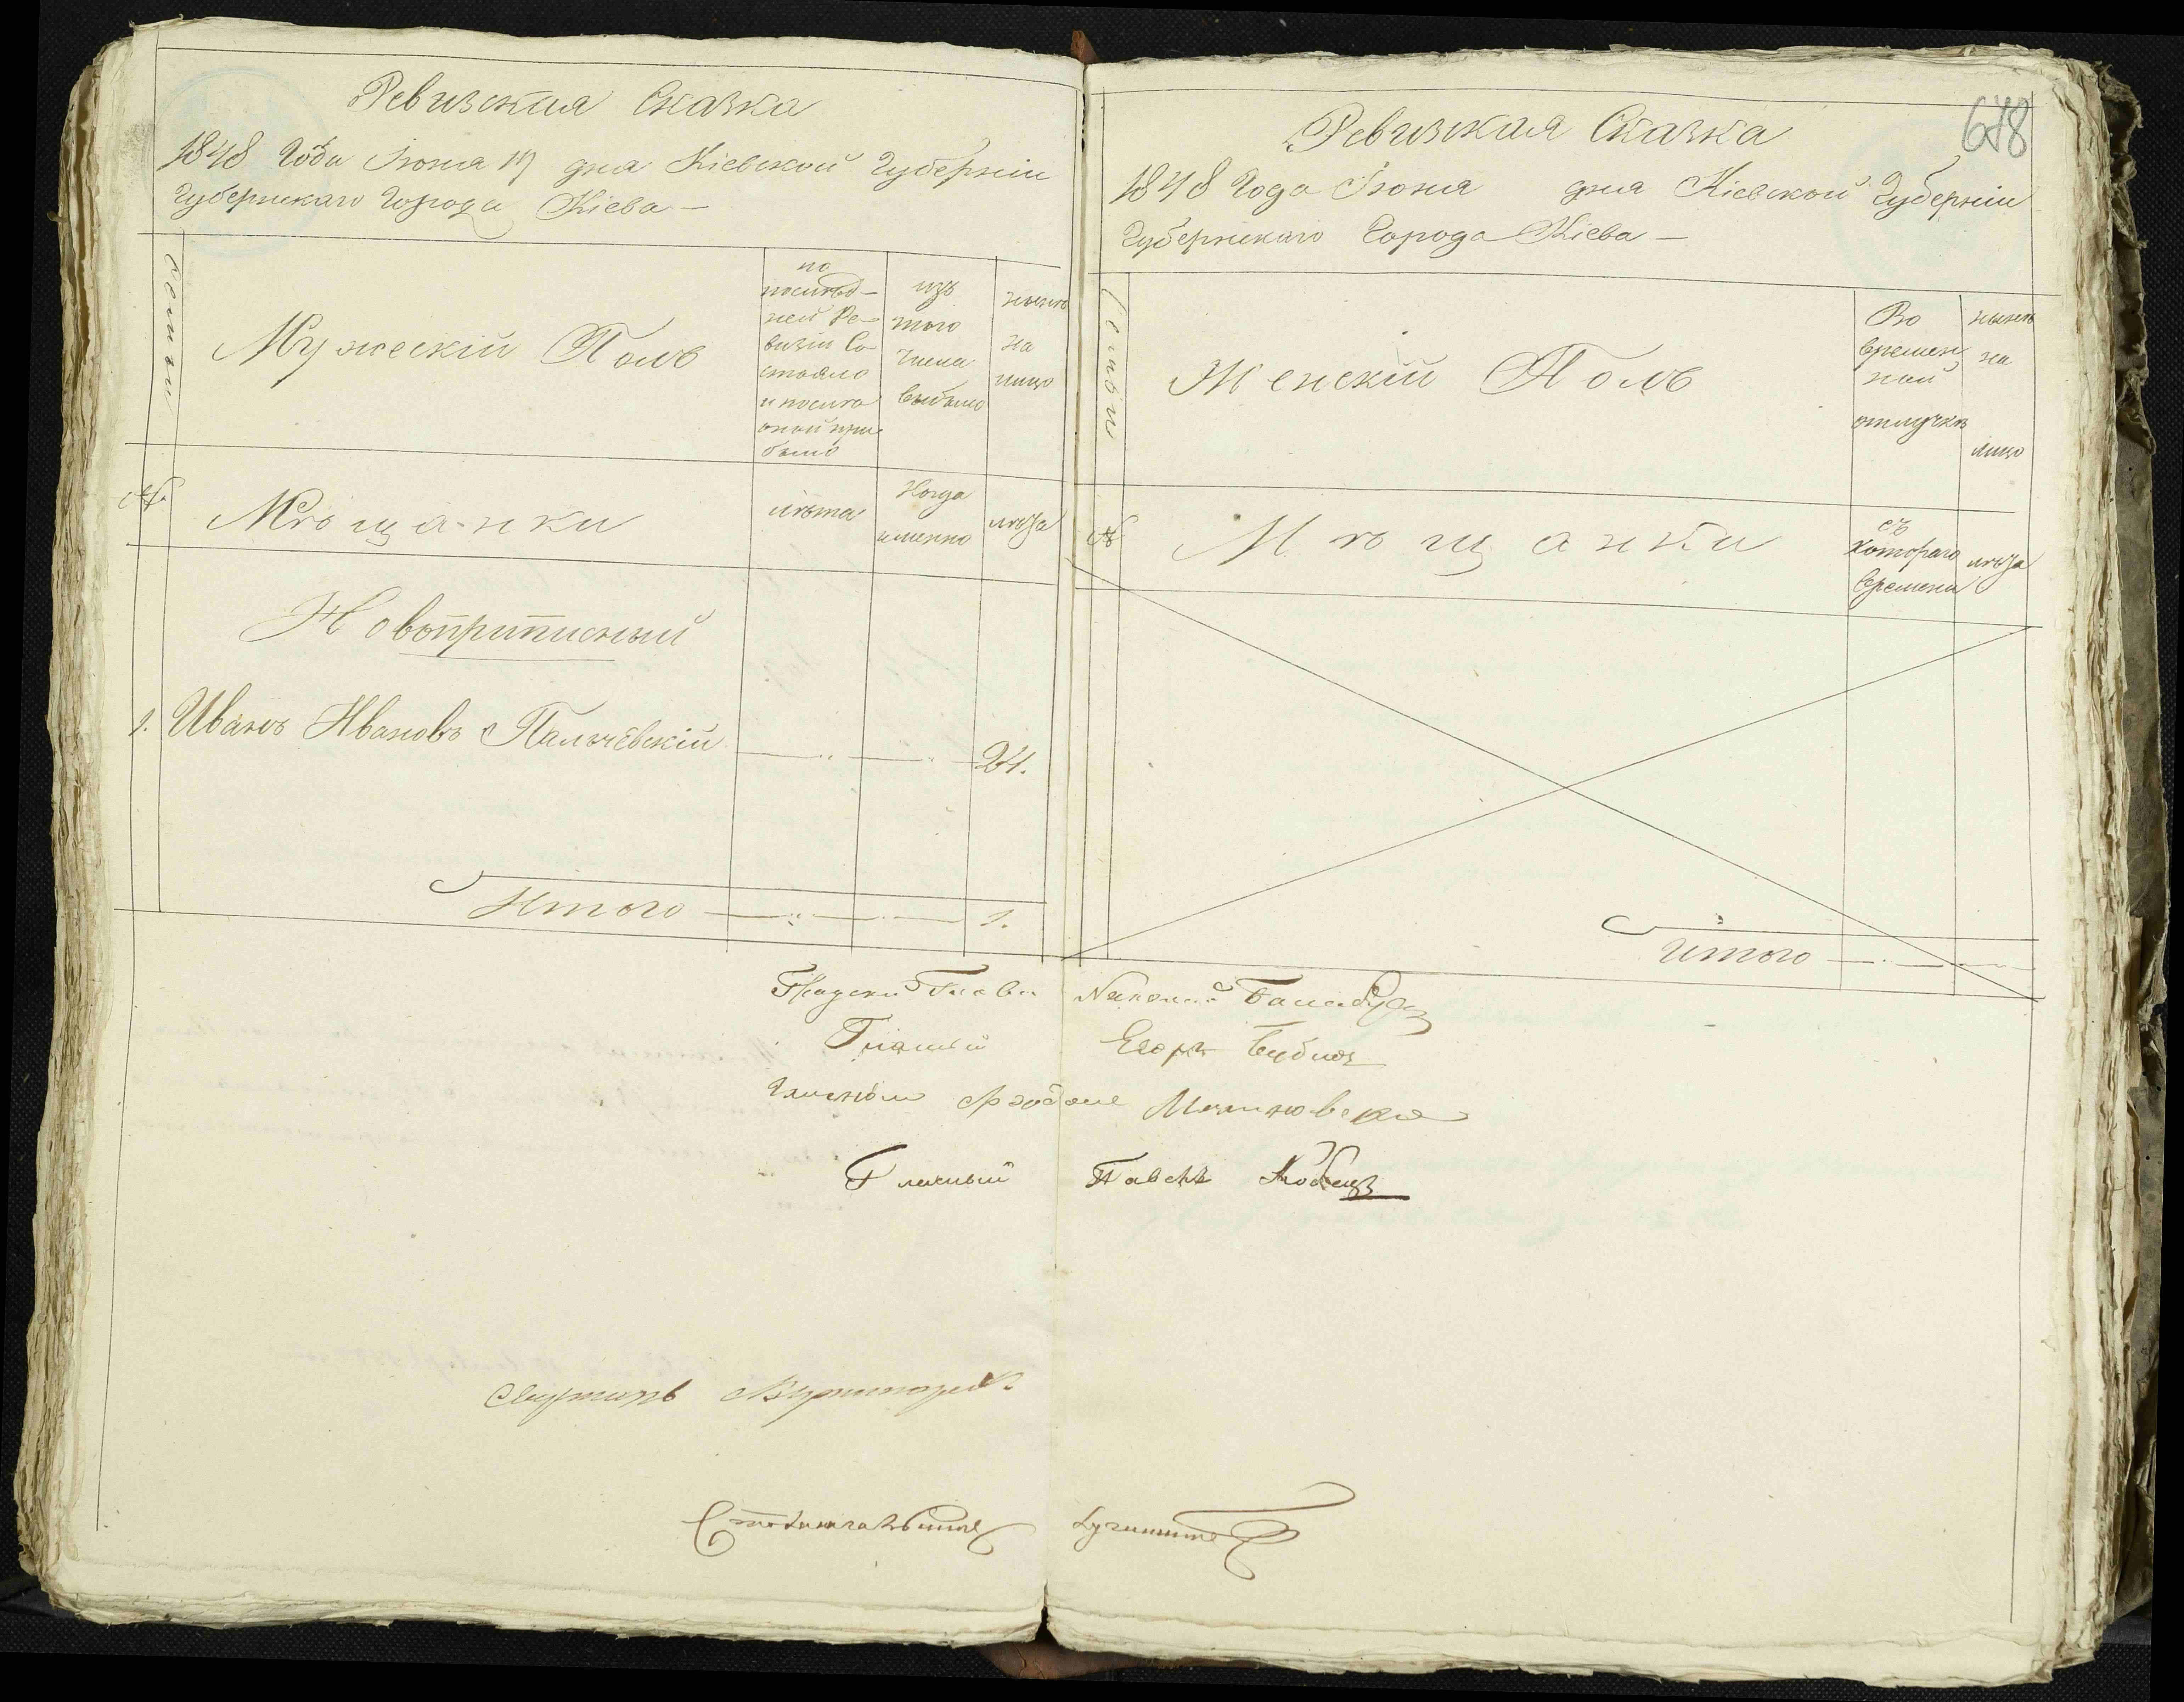 Ревизская Сказка
1848 Года Июня 19 дня Кіевской Губерніи
Губернскаго Города Кіева —
Семьи
Мужескій Полъ
по
послѣд-
ней Ре-
визіи Со-
стояло
и послѣ
оной при
было
изъ
того
числа
выбыло
нынѣ
на
лицо
№
Мѣщанки
лѣта
Когда
именно
лѣта
Новоприписный
1. Иванъ Ивановъ Пальчевскій — " — " — 24.
Итого — " — " — 1.
678
Ревизская Сказка
1848 Года Июня дня Кіевской Губерніи
Губернскаго Города Кіева —
Семьи
Женскій Полъ
Во
времен
ной
отлучкѣ
нынѣ
на
лицо
№
Мѣщанки
съ
котораго
времени
лѣта
Итого — " — " —
Градскій Глава Николай Балабуха
Гласный Егоръ Бубновъ
Гласный
Гласный Павелъ Кобецъ